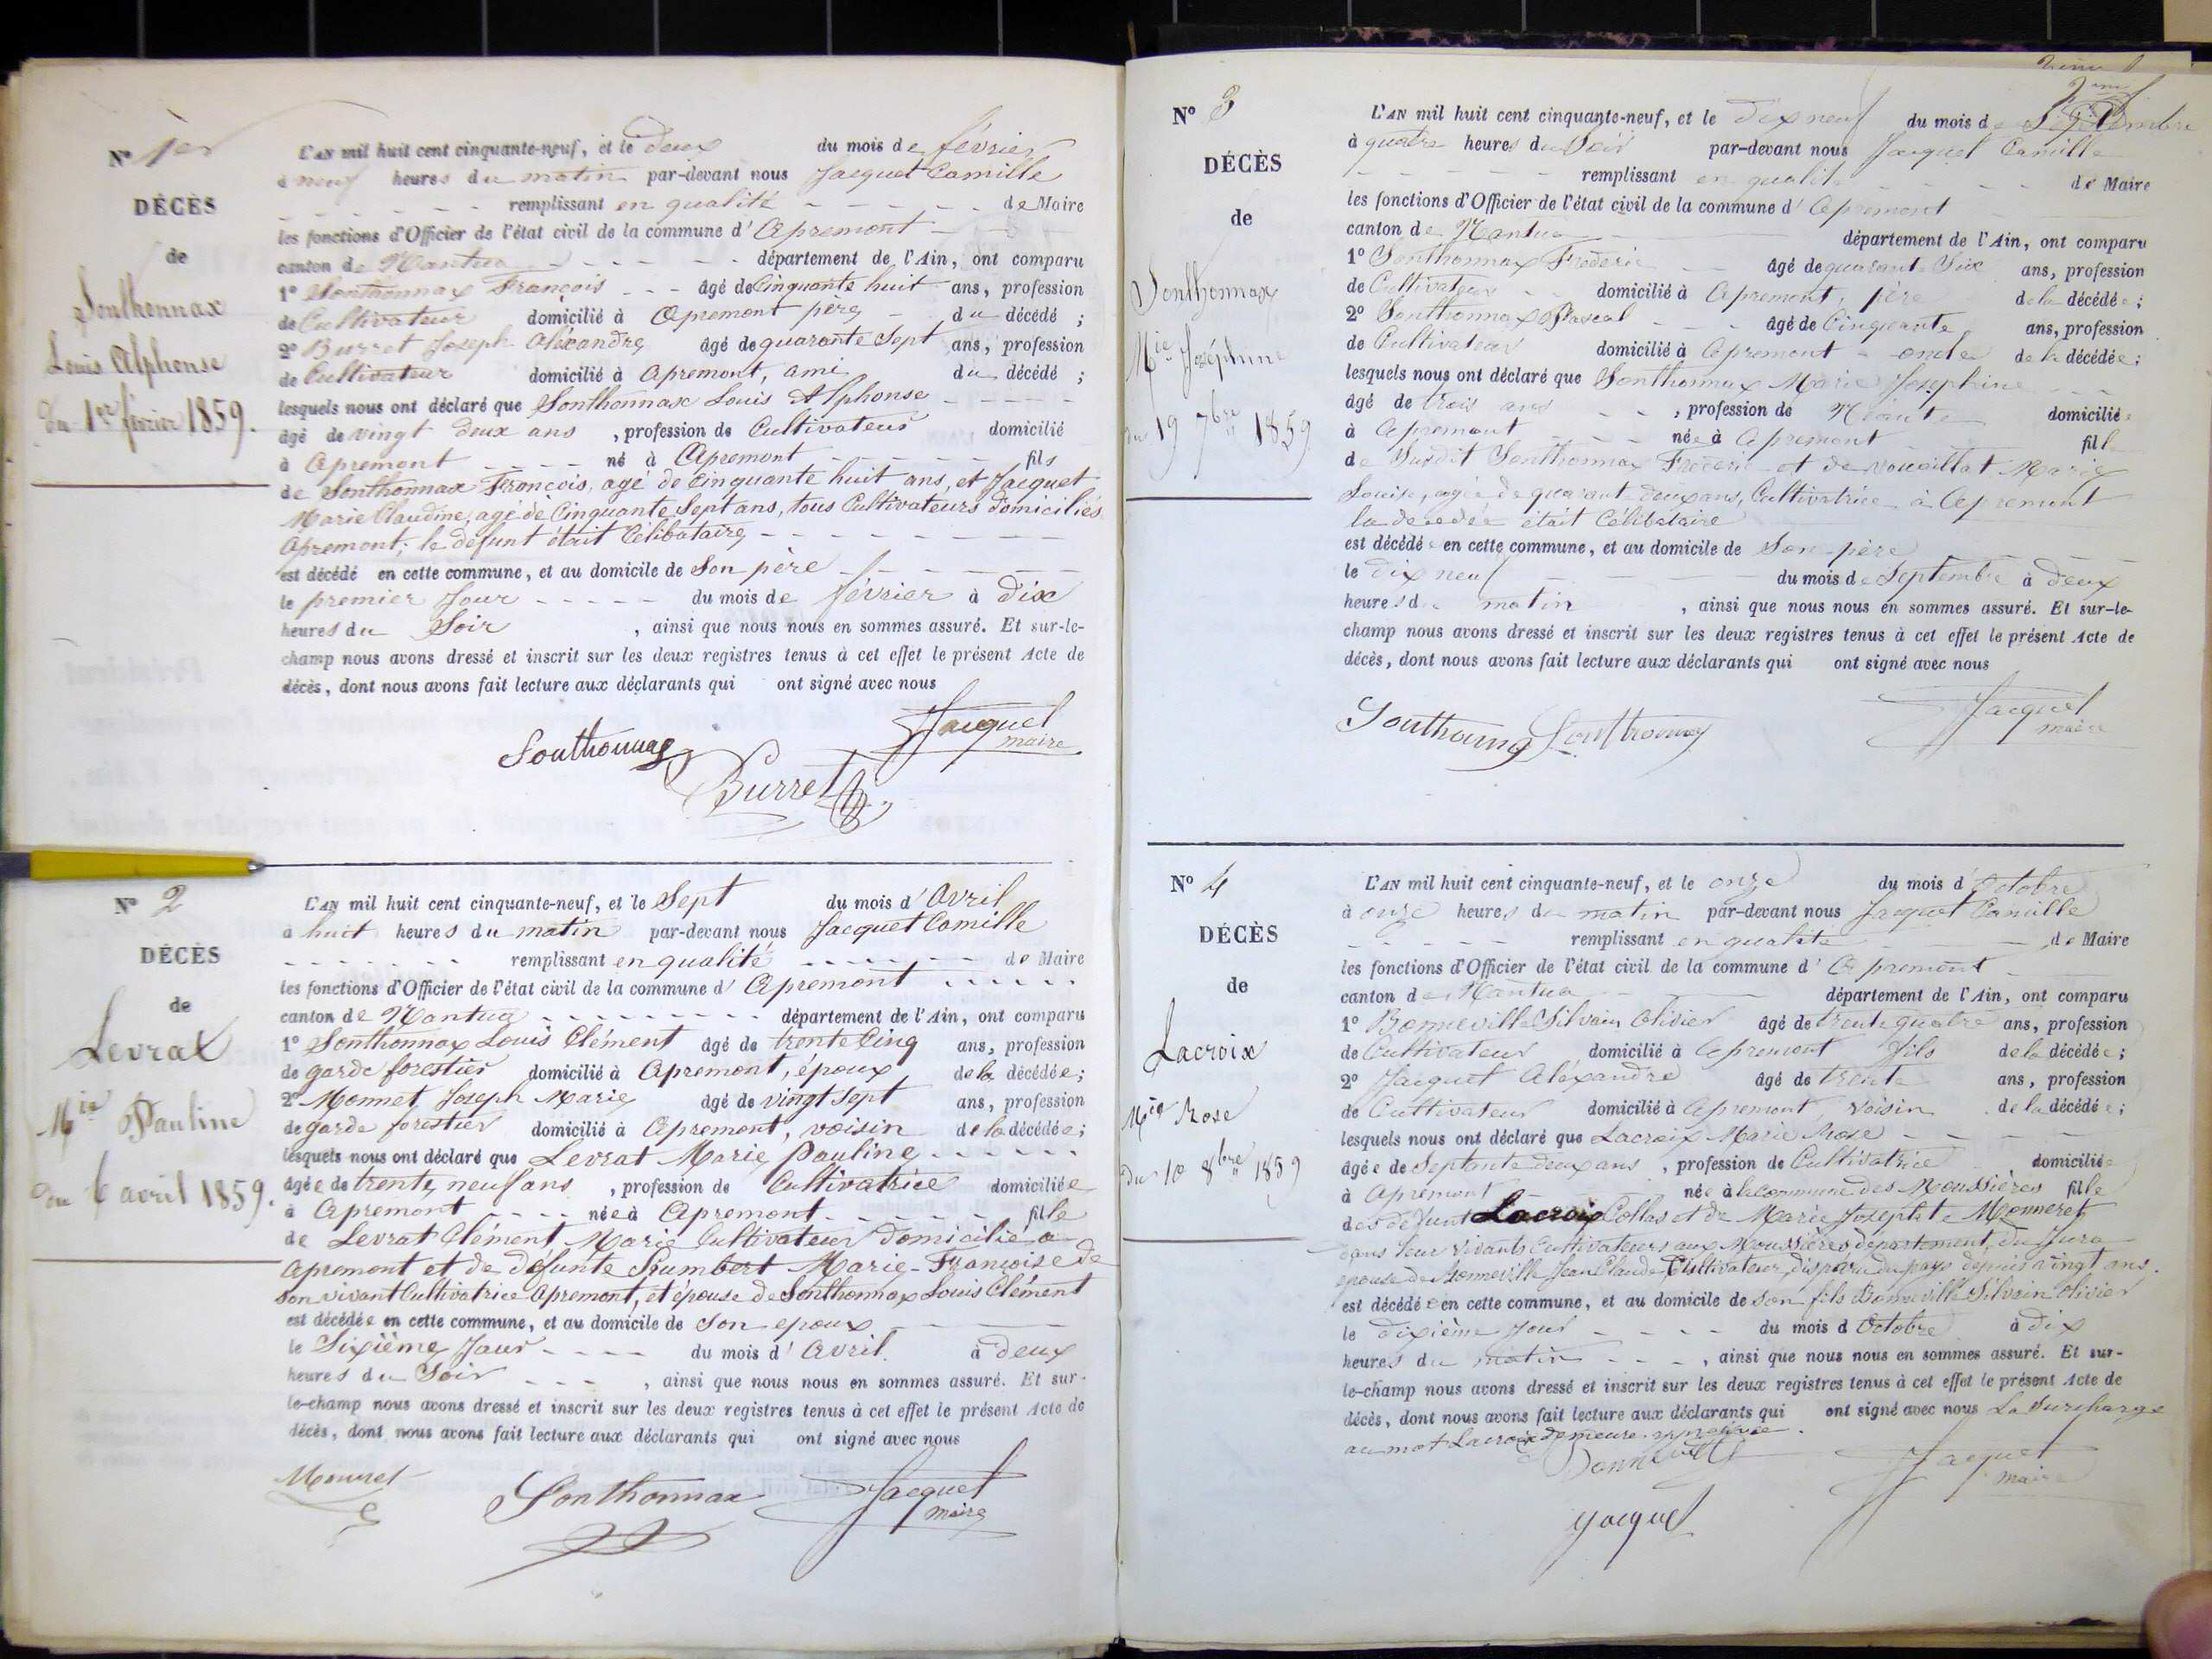 N° 1er
DÉCÈS
de
Sonthonnax
Louis Alphonse
du 1er février 1859.
L'AN mil huit cent cinquante-neuf, et le deux du mois de février
à neuf heures du matin par-devant nous Jacquet Camille
remplissant en qualité de Maire
les fonctions d'Officier de l'état civil de la commune d'Apremont
canton de Nantua département de l'Ain, ont comparu
1° Sonthonnax François âgé de Cinquante huit ans, profession
de Cultivateur domicilié à Apremont père du décédé ;
2° Burret Joseph Aléxandre âgé de quarante Sept ans, profession
de Cultivateur domicilié à Apremont, ami du décédé ;
lesquels nous ont déclaré que Sonthonnax Louis Alphonse
âgé de vingt deux ans , profession de Cultivateur domicilié
à Apremont né à Apremont fils
de Sonthonnax François, agé de Cinquante huit ans, et Jacquet
Marie Claudine, agé de Cinquante Sept ans, tous Cultivateurs domiciliés
Apremont; le défunt était Célibataire
est décédé en cette commune, et au domicile de Son père
le premier Jour du mois de février à Dix
heures du Soir , ainsi que nous nous en sommes assuré. Et sur-le-
champ nous avons dressé et inscrit sur les deux registres tenus à cet effet le présent Acte de
décès, dont nous avons fait lecture aux déclarants qui ont signé avec nous
Sonthonnax
Jacquet
maire
Burret
N° 2
DÉCÈS
de
Levrat
Mie Pauline
du 6 avril 1859.
L'AN mil huit cent cinquante-neuf, et le Sept du mois d'Avril
à huit heures du matin par-devant nous Jacquet Camille
remplissant en qualité de Maire
les fonctions d'Officier de l'état civil de la commune d'Apremont
canton de Nantua département de l'Ain, ont comparu
1° Sonthonnax Louis Clément âgé de trente Cinq ans, profession
de garde forestier domicilié à Apremont, époux de la décédée;
2° Monnet Joseph Marie âgé de vingt Sept ans, profession
de garde forestier domicilié à Apremont, voisin de la décédée;
lesquels nous ont déclaré que Levrat Marie Pauline
âgée de trente neuf ans , profession de Cultivatrice domiciliée
à Apremont née à Apremont fille
de Levrat Clément Marie Cultivateur domicilié a
Apremont et de défunte Humbert Marie-Françoise de
Son vivant Cultivatrice Apremont, et épouse de Sonthonnax Louis Clément
est décédée en cette commune, et au domicile de Son epoux
le Sixième Jour du mois d'Avril à deux
heures du Soir , ainsi que nous nous en sommes assuré. Et sur-
le-champ nous avons dressé et inscrit sur les deux registres tenus à cet effet le présent Acte de
décès, dont nous avons fait lecture aux déclarants qui ont signé avec nous
Monnet
Sonthonnax
Jacquet
maire
N° 3
DÉCÈS
de
Sonthonnax
Mie Joséphine
du 19 7bre 1859
L'AN mil huit cent cinquante-neuf, et le Dix neuf du mois de Septembre
à quatre heures du Soir par-devant nous Jacquet Camille
remplissant en qualité de Maire
les fonctions d'Officier de l'état civil de la commune d'Apremont
canton de Nantua département de l'Ain, ont comparu
1° Sonthonnax Frederic âgé de quarante Six ans, profession
de Cultivateur domicilié à Apremont, père de la décédée;
2° Sonthonnax Pascal âgé de Cinquante ans, profession
de Cultivateur domicilié à Apremont oncle de la décédée;
lesquels nous ont déclaré que Sonthonnax Marie Josephine
âgé de trois ans , profession de Néante domiciliée
à Apremont née à Apremont fille
de Susdit Sonthonnax Frederic et de Marie
Louise, agée de quarant deux ans, Cultivatrice à Apremont
la decedée était Célibataire
est décédée en cette commune, et au domicile de Son père
le Dix neuf du mois de Septembre à deux
heures du matin , ainsi que nous nous en sommes assuré. Et sur-le-
champ nous avons dressé et inscrit sur les deux registres tenus à cet effet le présent Acte de
décès, dont nous avons fait lecture aux déclarants qui ont signé avec nous
Sonthonnax Sonthonnax
Jacquet
maire
N° 4
DÉCÈS
de
Lacroix
Mie Rose
du 10 8bre 1859
L'AN mil huit cent cinquante-neuf, et le onze du mois d'Octobre
à onze heures du matin par-devant nous Jacquet Camille
remplissant en qualité de Maire
les fonctions d'Officier de l'état civil de la commune d'Apremont
canton de Nantua département de l'Ain, ont comparu
1° Bonneville Silvain Olivier âgé de trente quatre ans, profession
de Cultivateur domicilié à Apremont fils de la décédée;
2° Jacquet Aléxandre âgé de trente ans, profession
de Cultivateur domicilié à Apremont, voisin de la décédée;
lesquels nous ont déclaré que Lacroix Marie Rose
âgée de Septante deux ans , profession de Cultivatrice domiciliée
à Apremont née à la Commune des Moussières fille
de défunt Lacroix Collas et de Marie Josephte Monneret
dans leur vivants Cultivateurs aux Moussières département, du Jura
epouse de Bonneville Jean Claude, Cultivateur, disparu du pays depuis vingt ans.
est décédée en cette commune, et au domicile de Son fils Bonneville Silvain Olivier
le dixième Jour du mois d Octobre à dix
heures du matin , ainsi que nous nous en sommes assuré. Et sur-
le-champ nous avons dressé et inscrit sur les deux registres tenus à cet effet le présent Acte de
décès, dont nous avons fait lecture aux déclarants qui ont signé avec nous La Surcharge
au mot Lacroix demeure approuvée.
Bonneville
Jacquet
maire
Jacquet